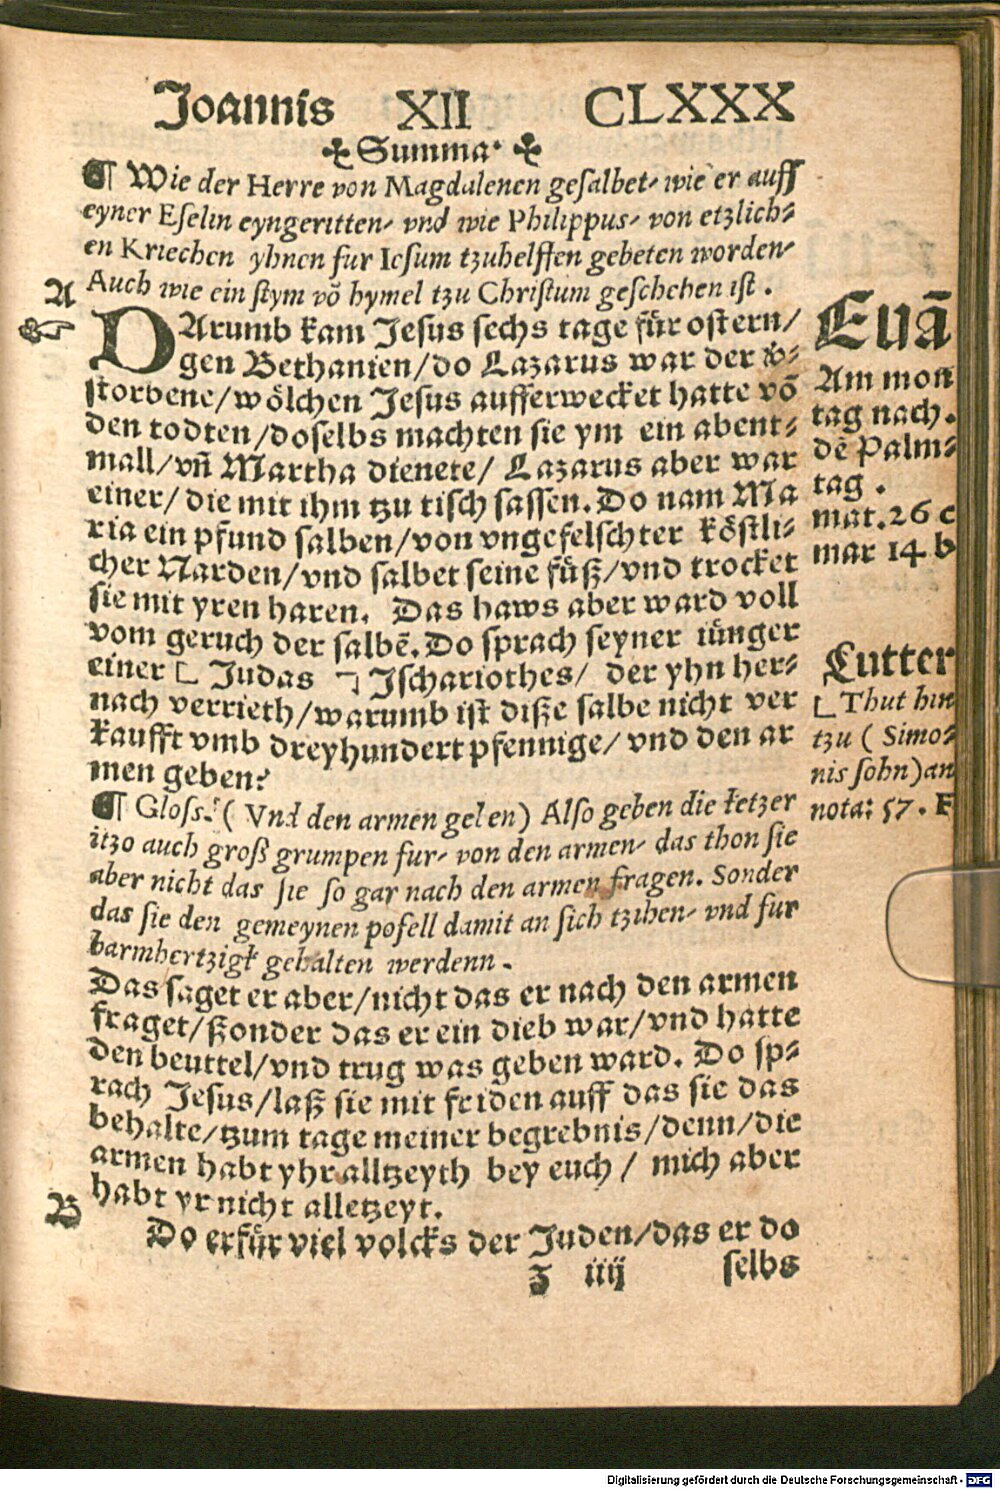 Joannis XII CLXXX
Summa.
¶ Wie der Herre von Magdalenen gesalbet/ wie er auff
eyner Eselin eyngeritten/ vnd wie Philippus/ von etzlich⸗
en Kriechen yhnen fur Iesum tzuhelffen gebeten worden/
Auch wie ein stym võ hymel tzu Christum geschehen ist.
A
DArumb kam Jesus sechs tage für ostern/
gen Bethanien/do Lazarus war der v̓⸗
storbene/wölchen Jesus aufferwecket hatte võ
den todten/doselbs machten sie ym ein abent⸗
mall/vñ Martha dienete/ Lazarus aber war
einer/die mit ihm tzu tisch sassen. Do nam Ma
ria ein pfund salben/von vngefelschter köstli⸗
cher Narden/vnd salbet seine füß/vnd trocket
sie mit yren haren. Das haws aber ward voll
vom geruch der salbẽ. Do sprach seyner iünger
einer [ Judas ] Jschariothes/ der yhn her⸗
nach verrieth/warumb ist diße salbe nicht ver
kaufft vmb dreyhundert pfennige/ vnd den ar
men geben?
¶ Gloss. (Vnd den armen geben) Also geben die ketzer
itzo auch groß grumpen fur/ von den armen/ das thon sie
aber nicht das sie so gar nach den armen fragen. Sonder
das sie den gemeynen pofell damit an sich tzihen/ vnd fur
barmhertzigk gehalten werdenn.
Das saget er aber/nicht das er nach den armen
fraget/ßonder das er ein dieb war/vnd hatte
den beuttel/vnd trug was geben ward. Do sp⸗
rach Jesus/laß sie mit friden auff das sie das
behalte/tzum tage meiner begrebnis/denn/die
armen habt yhr alltzeyth bey euch/ mich aber
habt yr nicht alletzeyt.
B
Do erfür viel volcks der Juden/das er do
Z iiij selbs
Euã
Am mon
tag nach.
dẽ Palm⸗
tag.
mat. 26 c
mar 14 b
Lutter
[ Thut hin
tzu (Simo⸗
nis sohn) an
nota: 57. F
Digitalisierung gefördert durch die Deutsche Forschungsgemeinschaft - DFG